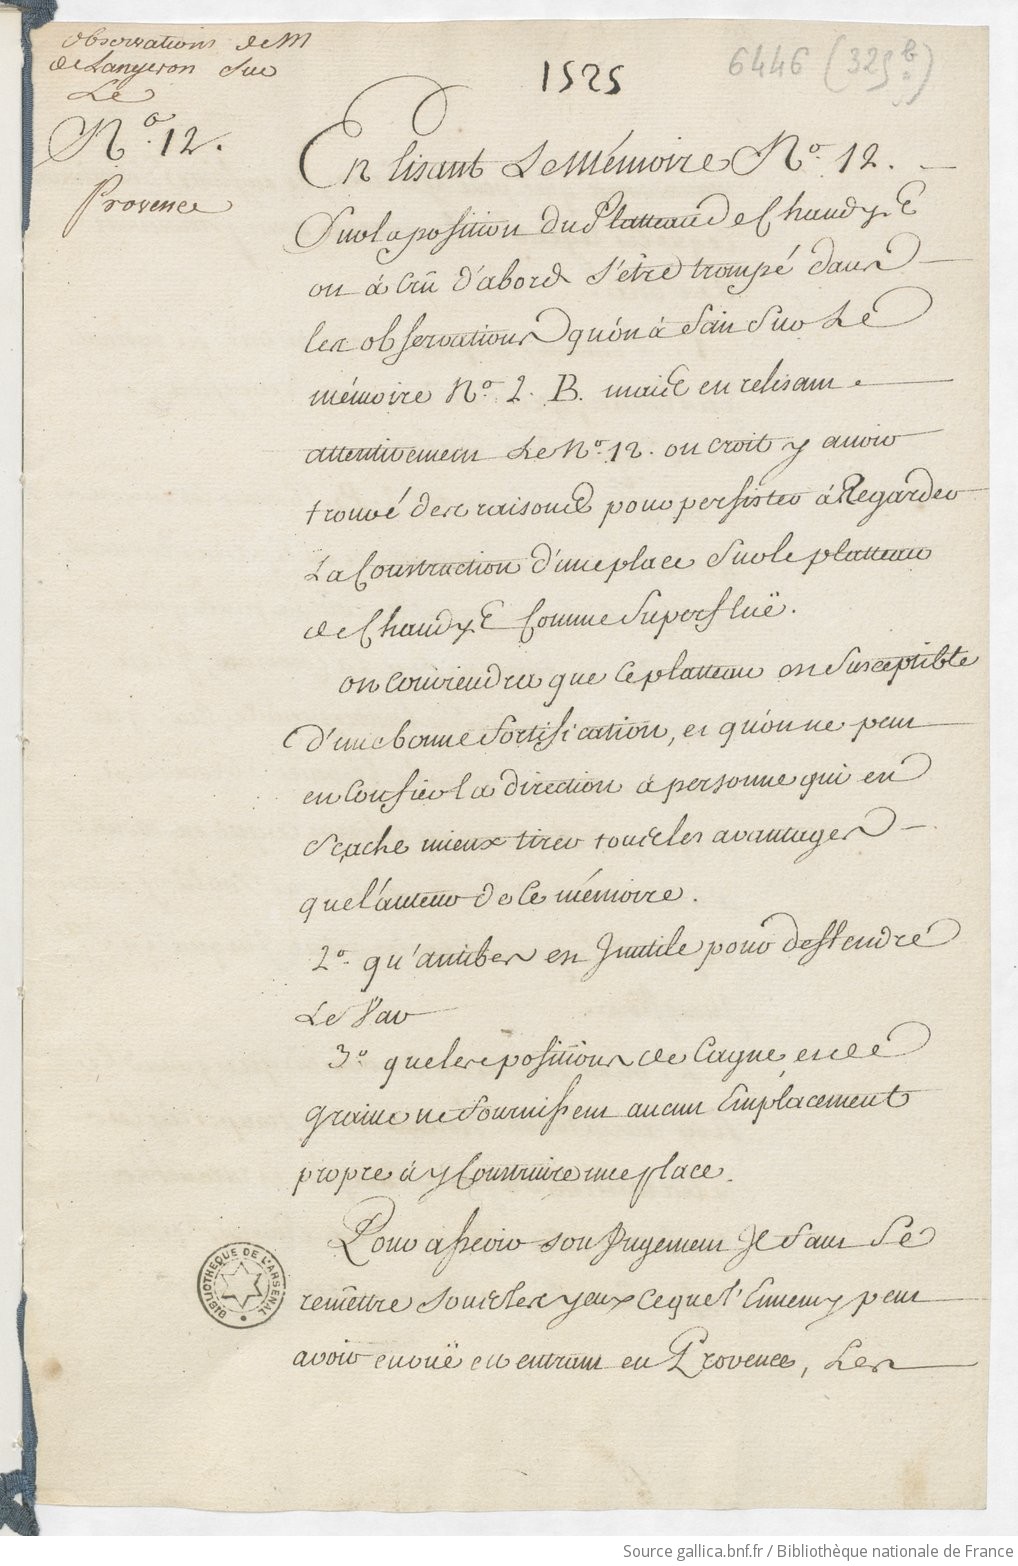 observations de M
de Langeron Sur
Le
N.º 12.
Provence
1525
6446 (325 b.)
En lisant Le Mémoire N.º 12.
Sur la position du Plateau de Chaudy E
on á crû d'abord s'être trompé dans
les observations qu'on á fait sur Le
mémoire N.º 2. B. mais en relisant
attentivement Le N.º 12. on croit y auoir
trouvé des raisons pour persister á Regarder
La Construction d'une place Sur le platteau
de Chaudy E Comme Superfluë.
on conviendra que Ce platteau est Susceptible
D'une bonne fortification, et qu'on ne peut
en Confier la direction á personne qui en
Sçache mieux tirer tous les avantages
que l'auteur de Ce mémoire.
2.º qu'antibes est Jnutile pour deffendre
Le Var
3.º que les positions de Cagne et de
Grasse ne fournissent aucun Emplacement
propre á y Construire une place.
Pour asseoir son Jugement Jl faut Se
remettre sous les yeux ce que l'Ennemy peut
avoir en vuë en entrant en Provence, Les
BIBLIOTHEQUE DE L'ARSENAL
Source gallica.bnf.fr / Bibliothèque nationale de France